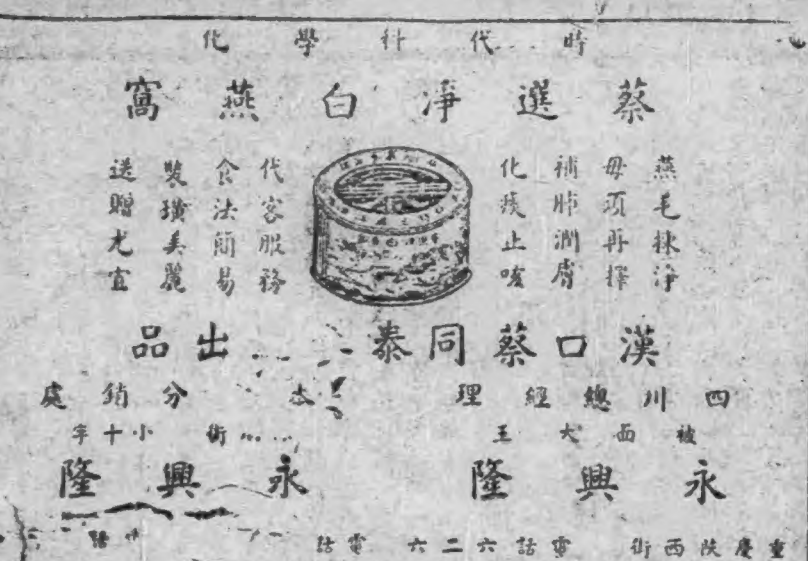 時代科學化
蔡選淨白燕窩
燕毛揀淨
毋須再擇
補肺潤膚
化痰止咳
代客服務
食法簡易
裝璜美麗
送贈尤宜
漢口蔡同泰出品
四川總經理
被面大王
永興隆
重慶陝西街 電話六二六
本 分銷處
街小十字
永興隆
電話